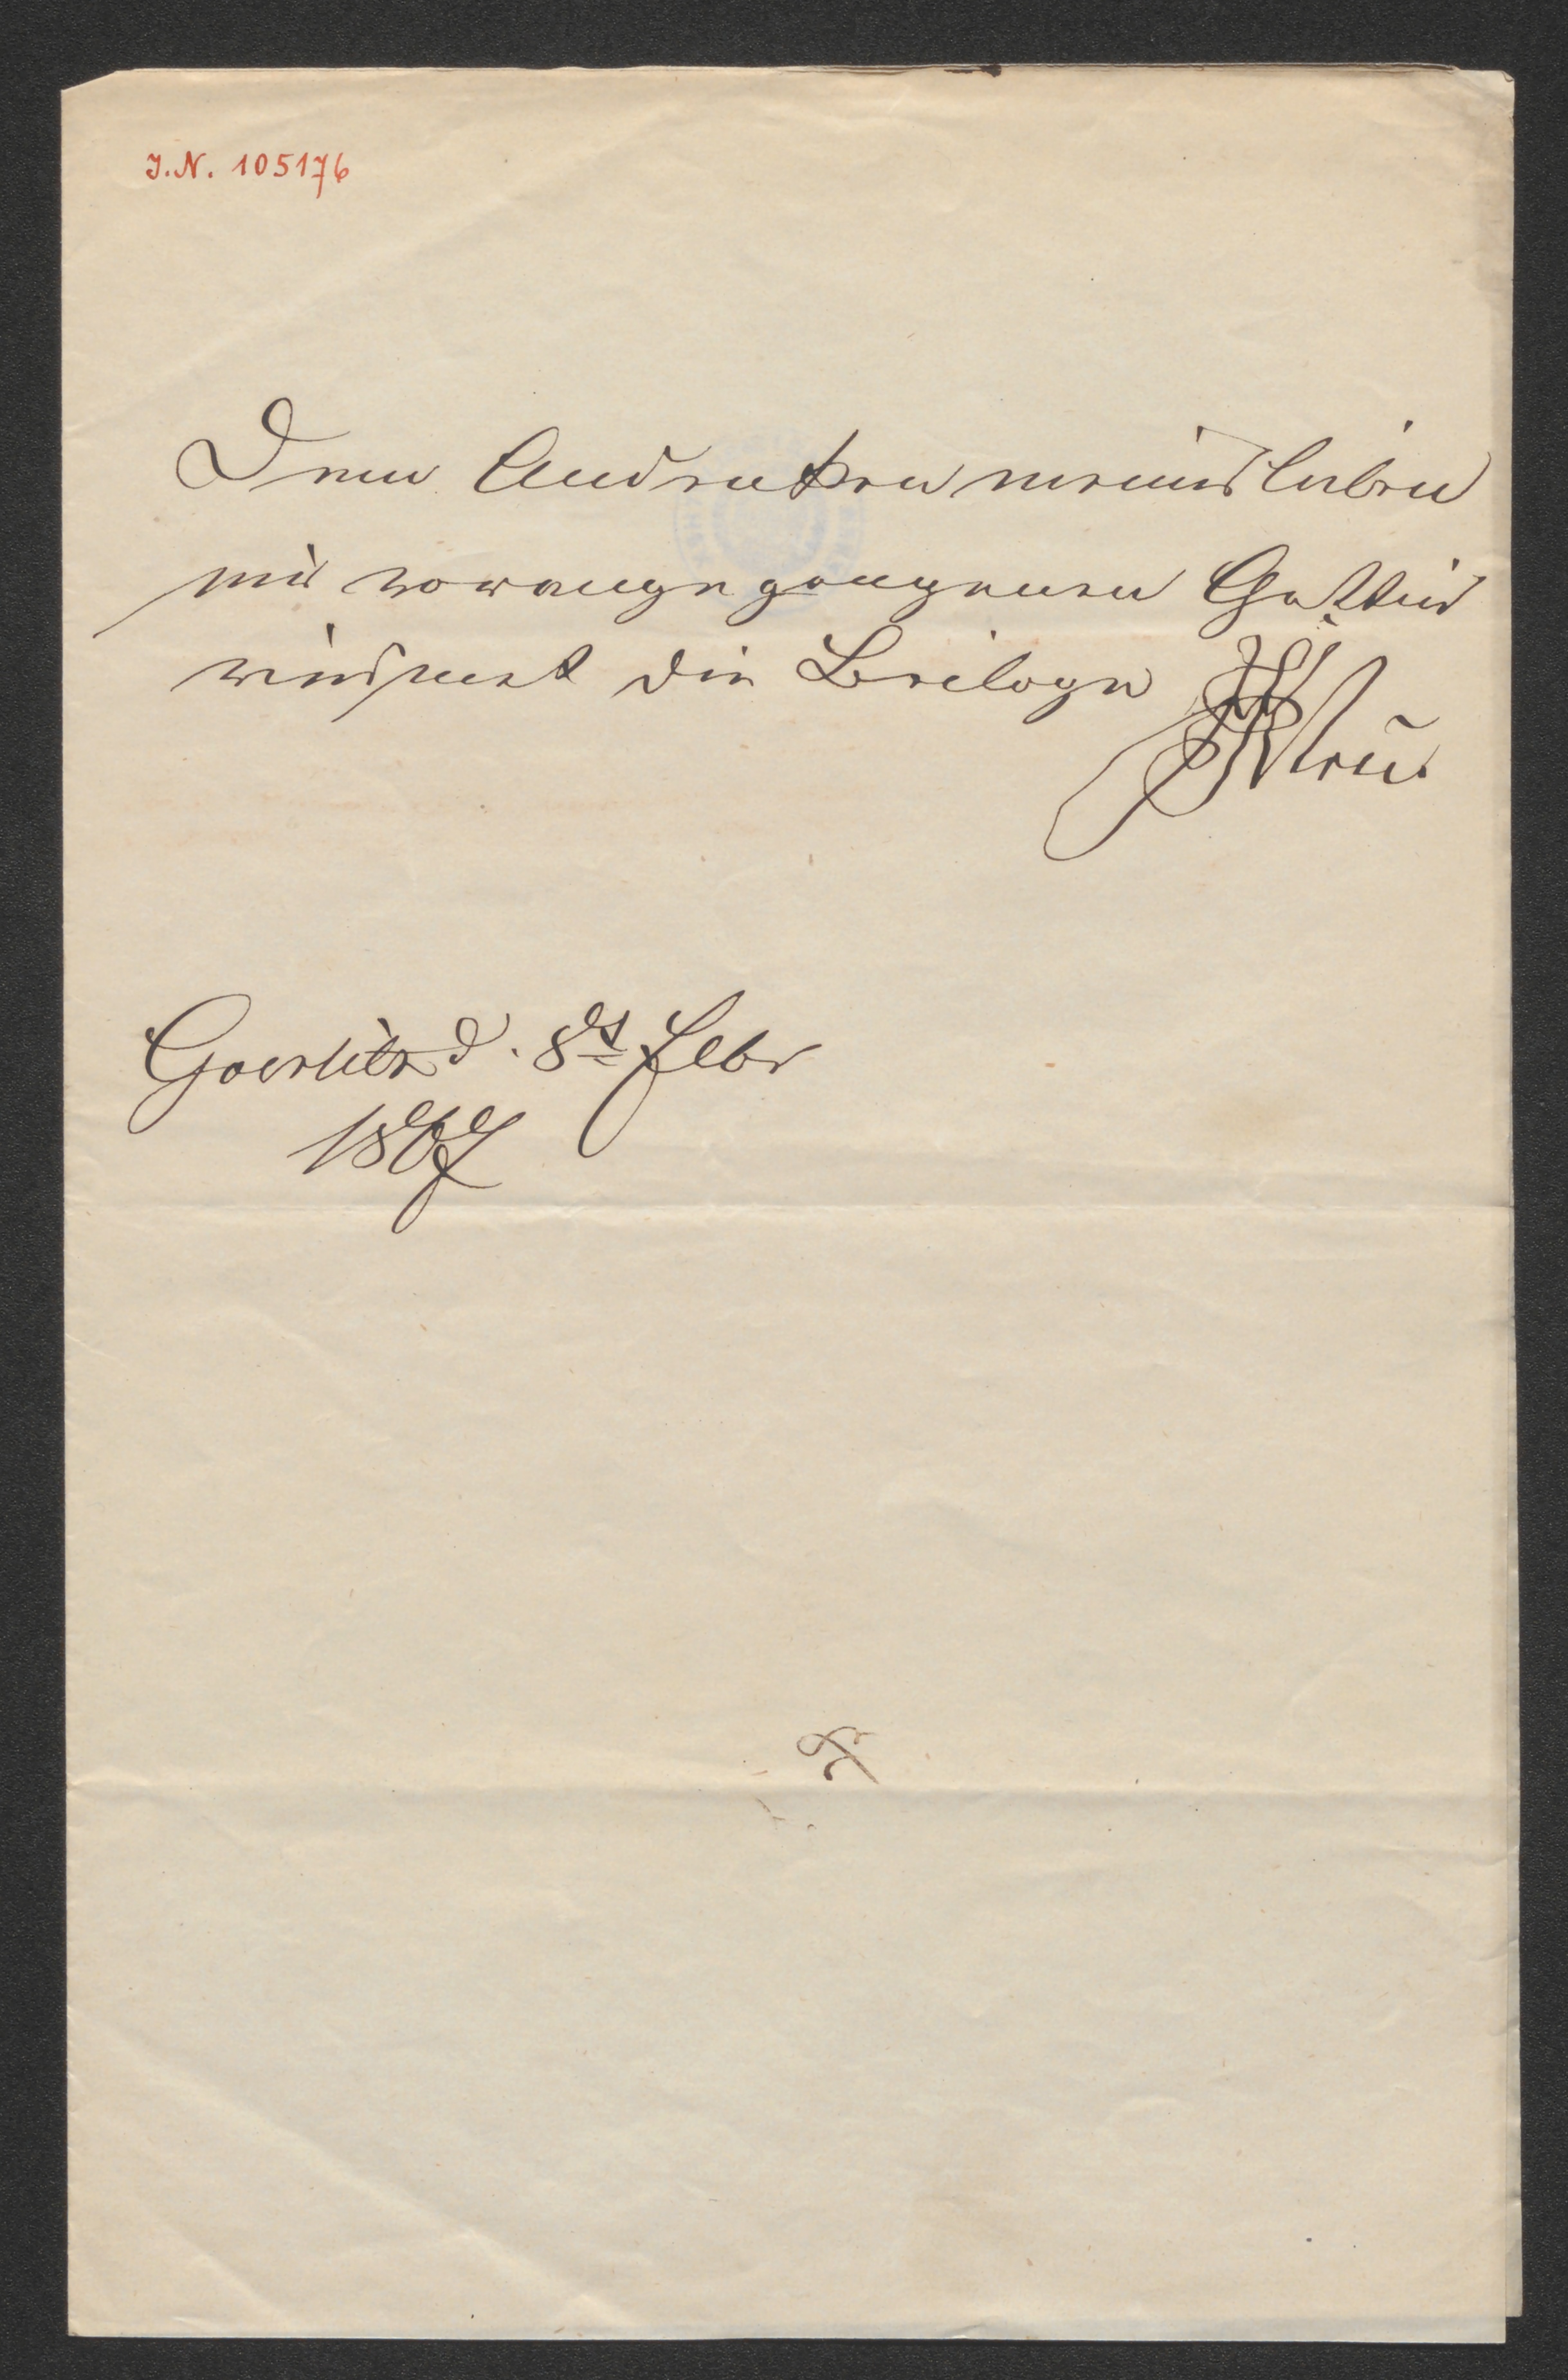 J.N. 105176
Dem Andenken meiner lieben
mir vorangegangenen Gattin
widmet die Beilage
Goerlitz d. 8t Febr
1867